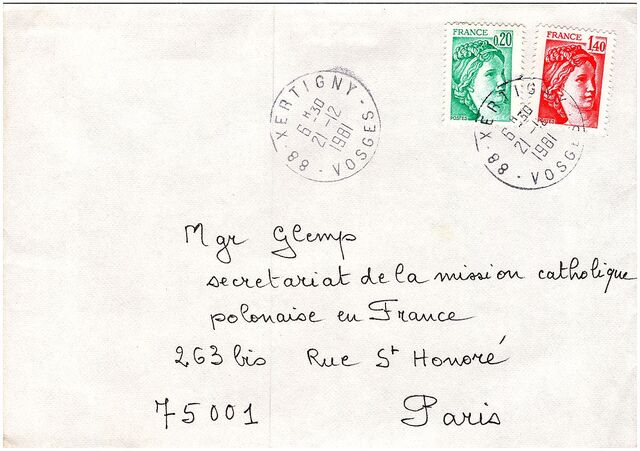 FRANCE 0,20
FRANCE 1,40
88 - XERTIGNY - VOSGES
6 H 30
21-12
1981
88 - XERTIGNY - VOSGES
6 H 30
21-12
1981
Mgr Glemp
secretariat de la mission catholique
polonaise en France
263 bis Rue St Honoré
75001 Paris